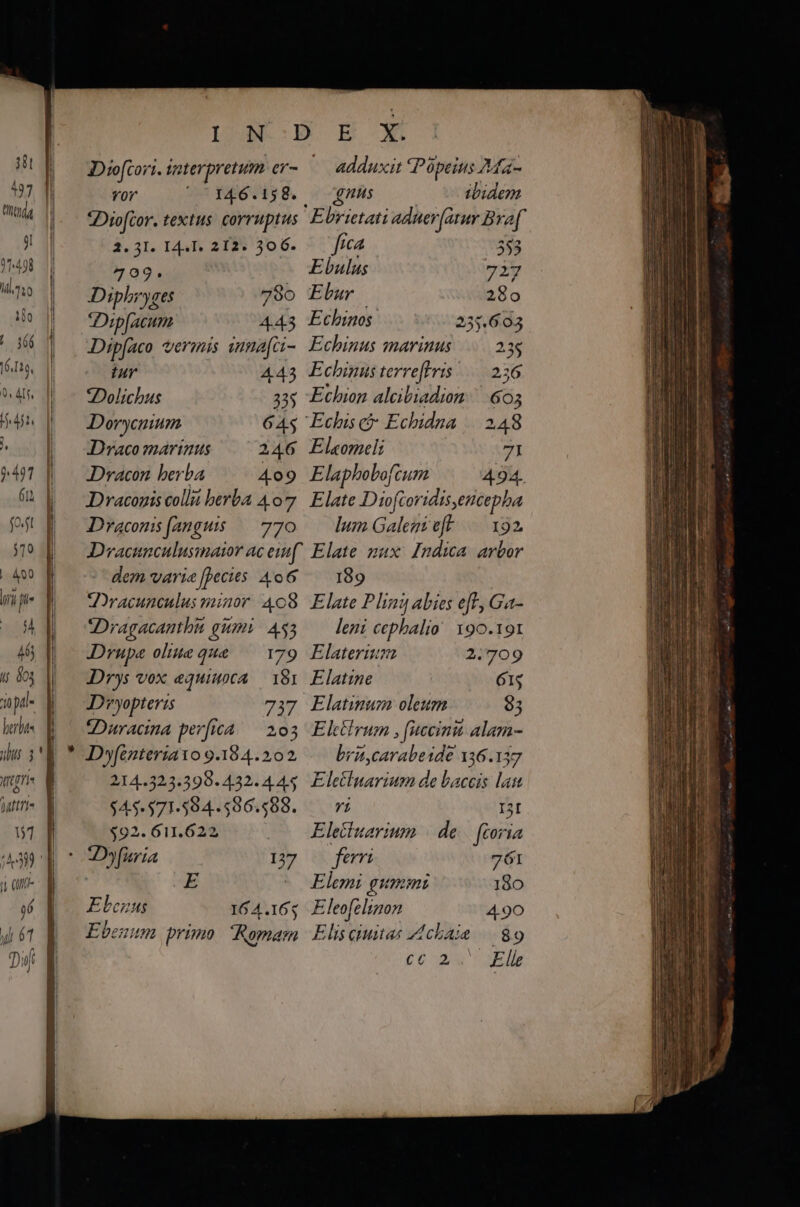 INDEX.
Dioſcori. interpretum er-
ror 146.158.
Dioſcor. textus corruptus
2.31. 141. 212. 306.
709.
Diphryges 780
Dipſacum 443
Dipſaco vermis innaſci-
tur 443
Dolichus 335
Dorycnium 645
Draco marinus 246
Dracon herba 409
Draconis colli herba 407
Draconis ſanguis 770
Dracunculus maior ac eiuſ
dem variæ ſpecies 406
Dracunculus minor 408
Dragacanthii gũmi 453
Drupæ oliuæ quæ 179
Drys vox æquiuoca 181
Dryopteris 737
Duracina perſica 203
Dyſenteria 109.184.202
214.323.398.432.445
545.571.584.586.588.
592.611.622
Dyſuria 137
E
Ebenus 164.165
Ebenum primo Romam
adduxit Põpeius Ma-
gnus ibidem
Ebrietati aduerſatur Braſ
ſica 353
Ebulus 727
Ebur 280
Echinos 235.603
Echinus marinus 235
Echinus terreſtris 236
Echion alcibiadion 603
Echis & Echidna 248
Elæomeli 71
Elaphoboſcum 494.
Elate Dioſcoridis, encepha
lum Galeni eſt 192
Elate nux Indica arbor
189
Elate Plinij abies eſt, Ga-
leni cephalio 190.191
Elaterium 2.709
Elatine 615
Elatinum oleum 83
Electrum, ſuccinũ alam-
brũ, carabe idẽ 136.137
Electuarium de baccis lau
ri 131
Electuarium de ſcoria
ferri 761
Elemi gummi 180
Eleoſelinon 490
Elis ciuitas Achaiæ 89
cc 2 Elle